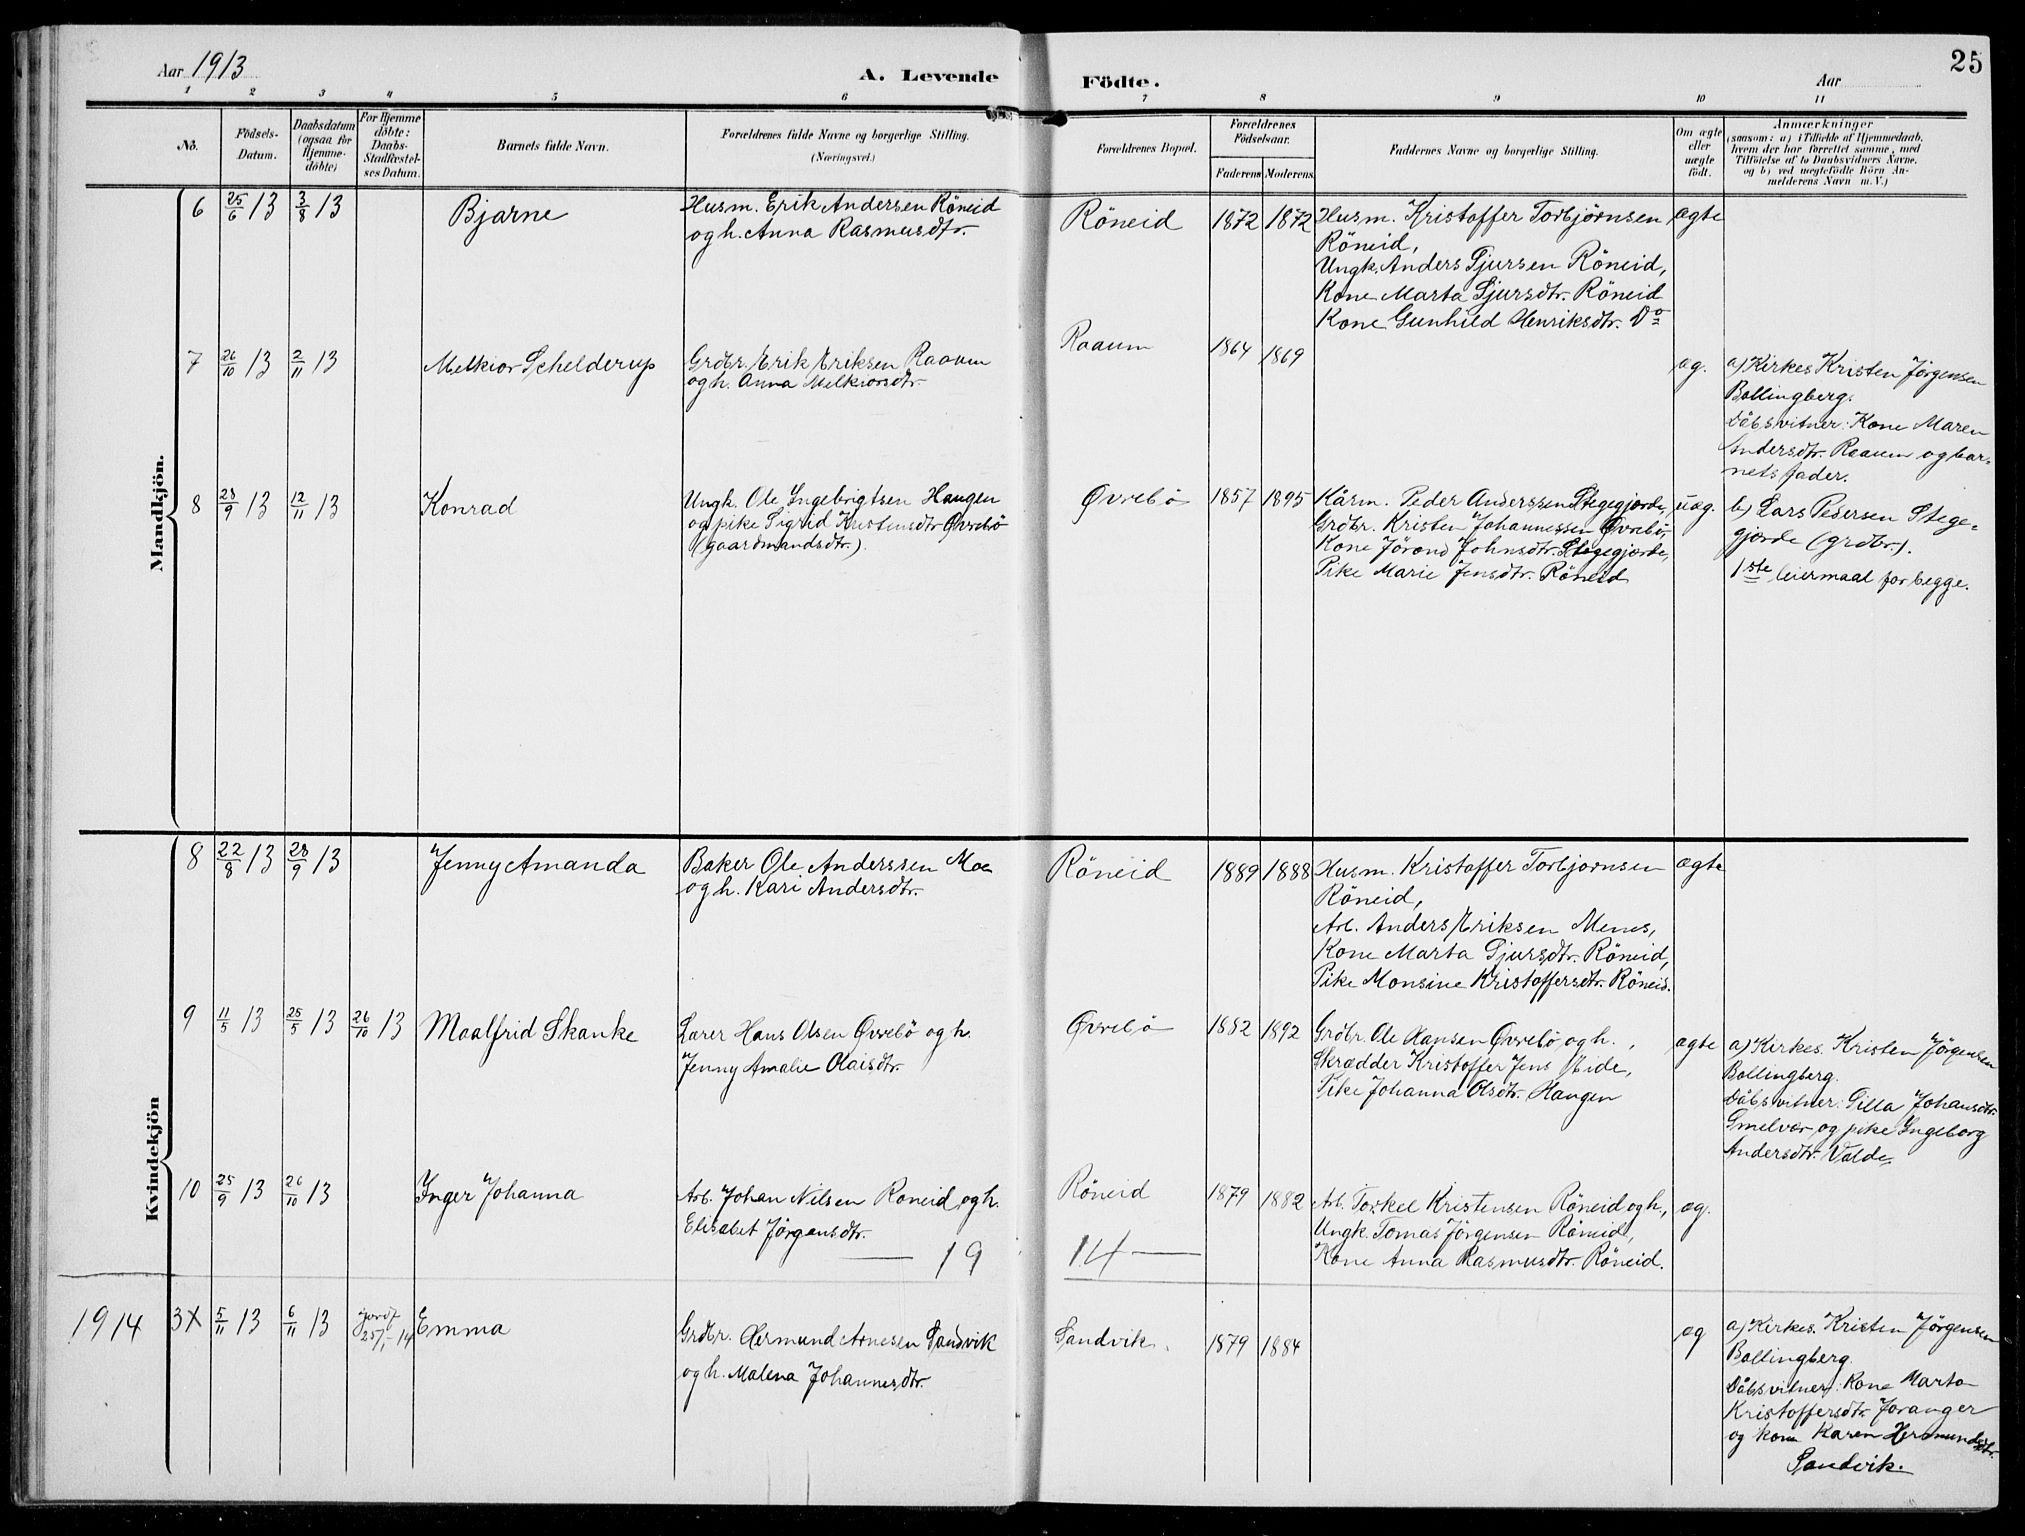 25
Aar 1913
A. Levende
Födte.
Aar
1 2 3 4 5 6 7 8 9 10 11
No.
Födsels-
Datum.
Daabsdatum
(ogsaa for
Hjemme-
döbte)
For Hjemme
döbte:
Daabs-
Stadfæstel-
ses Datum.
Barnets fulde Navn.
Forældrenes fulde Navne og borgerlige Stilling.
(Næringsvei.)
Forældrenes Bopæl.
Forældrenes
Födselsaar.
Faderens Moderens
Faddernes Navne og borgerlige Stilling.
Om ægte
eller
uægte
födt.
Anmærkninger
(saasom: a) i Tilfælde af Hjemmedaab,
hvem der har forrettet samme, med
Tilföielse af to Daabsvidners Navne.
og b) ved uægtefödte Börn An-
melderens Navn m. V.)
Mandkjön.
6 25/6 13 3/8 13
Bjarne
Husm. Erik Andersen Röneid
og h. Anna Rasmusdtr.
Röneid
1872 1872
Husm. Kristoffer Torbjørnsen
Röneid,
Ungk. Anders Sjursen Röneid,
Kone Marta Sjursdtr. Röneid
Kone Gunhild Henriksdtr. Do
ægte
7 26/10 13 2/11 13
Melkior Schelderup
Grdbr. Erik Eriksen Raaum
og h. Anna Melkiorsdtr.
Raaum
1864 1869
æg.
a) Kirkes Kristen Jørgensen
Bollingberg.
Dåbsvitner: Kone Maren
Andersdtr. Raaum og bar-
nets fader.
8 28/9 13 12/11 13
Konrad
Ungk. Ole Ingebrigtsen Haugen
og pike Sigrid Kristensdtr Øvrebö
(gaardmandsdtr.).
Øvrebö
1857 1895
Kårm. Peder Anderssen Stegegjærde,
Grdbr. Kristen Johannessen Øvrebö,
Kone Jørond Johnsdtr. Stegegjærde,
Pike Marie Jensdtr. Röneid
uæg.
b) Lars Pedersen Stege-
gjærde (grdbr.).
1ste leiermaal for begge.
Kvindekjön
8 22/8 13 28/9 13
Jenny Amanda
Baker Ole Anderssen Moe
og h. Kari Andersdtr.
Röneid
1889 1888
Husm. Kristoffer Torbjørnsen
Röneid,
Arb. Anders Eriksen Menes,
Kone Marta Sjursdtr. Röneid,
Pike Monsine Kristoffersdtr. Röneid.
ægte
9 11/5 13 25/5 13 26/10 13
Maalfrid Skanke
Lærer Hans Olsen Øvrebö og h.
Jenny Amalie Olaisdtr.
Øvrebö
1882 1892
Grdbr. Ole Hansen Øvrebö og h.,
Skrædder Kristoffer Jens Eide,
Pike Johanna Olsdtr. Haugen
ægte
a) Kirkes. Kristen Jørgensen
Bollingberg.
Dåbsvitner: Gilla Johansdtr.
Smelvær og pike Ingeborg
Andersdtr. Valde.
10 25/9 13 26/10 13
Inger Johanna
Arb. Johan Nilsen Roneid og h.
Elisabet Jørgensdtr.
Röneid
1879 1882
Arb. Torkel Kristensen Röneid og h.,
Ungk. Tomas Jørgensen Röneid,
Kone Anna Rasmusdtr. Röneid.
æg.
19
14
1914
3X 5/11 13 6/11 13
Emma
Grdbr. Hermund Arnesen Sandvik
og h. Malena Johannesdtr.
Sandvik.
1879 1884
æg
a) Kirkes. Kristen Jørgensen
Bollingberg.
Dåbsvitner: Kone Marta
Kristoffersdtr. Joranger
og kone Karen Hermundsdtr.
Sandvik.